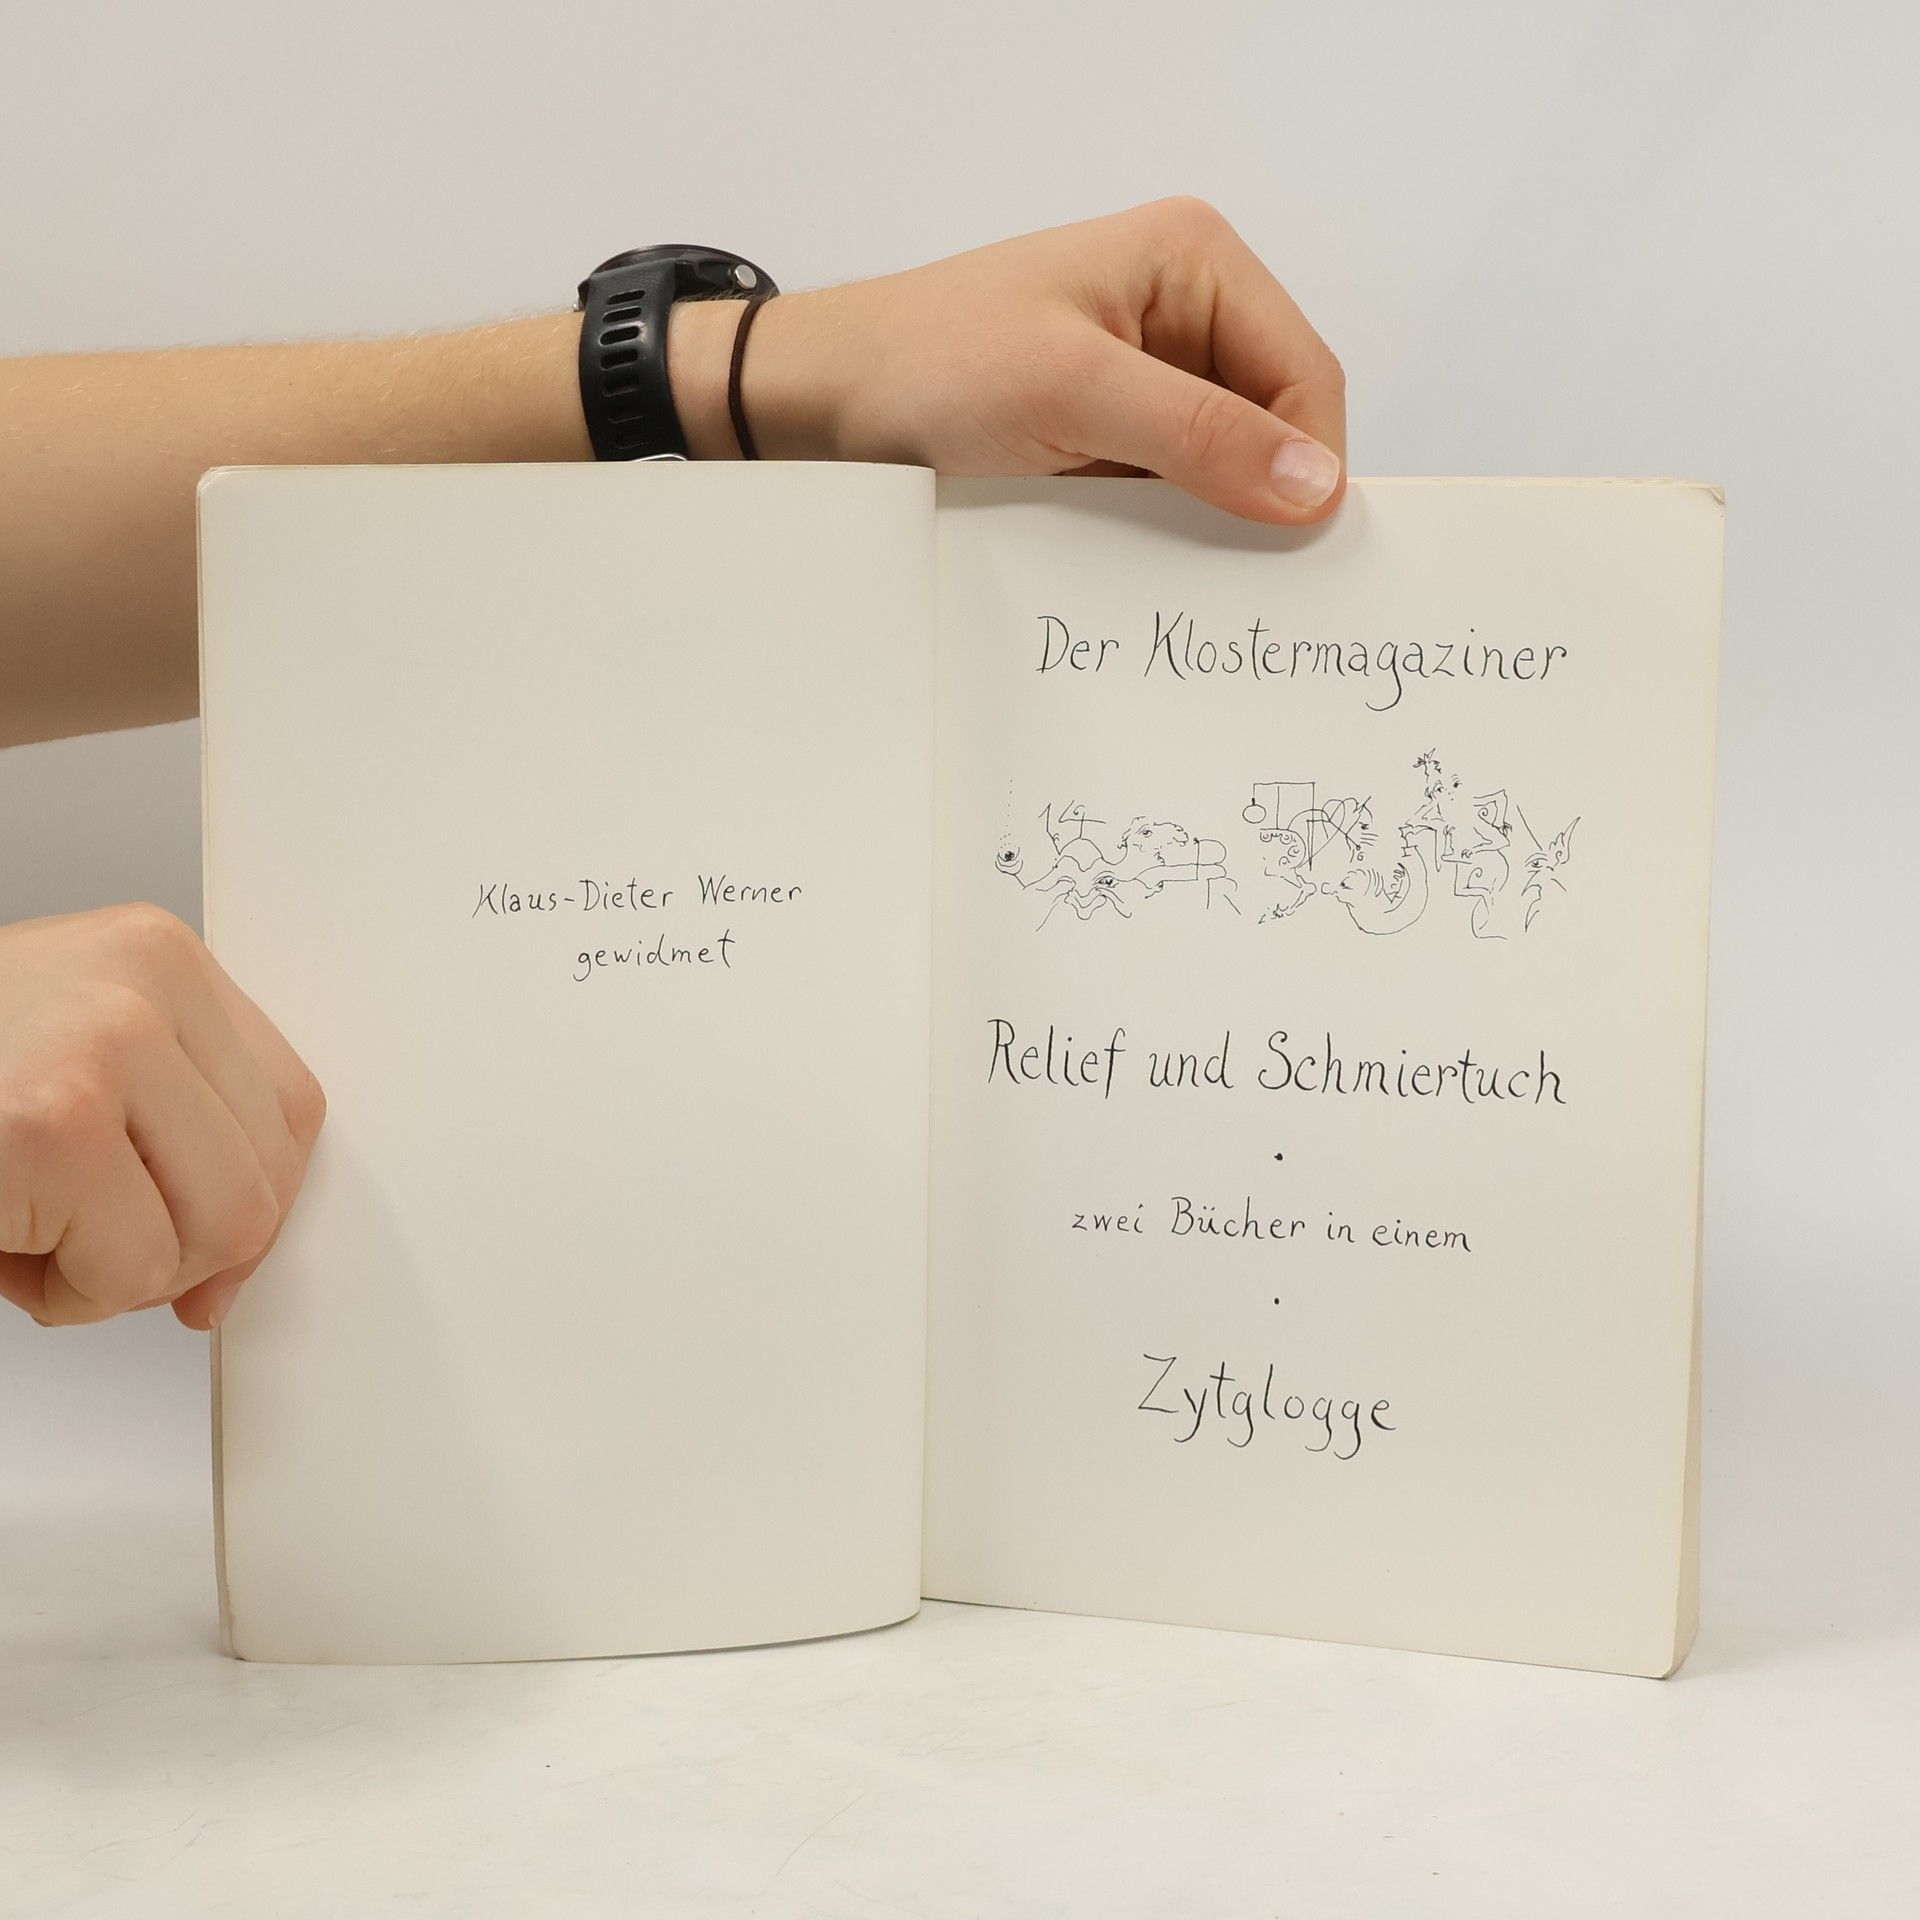 Klaus-Dieter Werner
gewidmet
Der Klostermagaziner
Relief und Schmiertuch
•
zwei Bücher in einem
•
Zytglogge